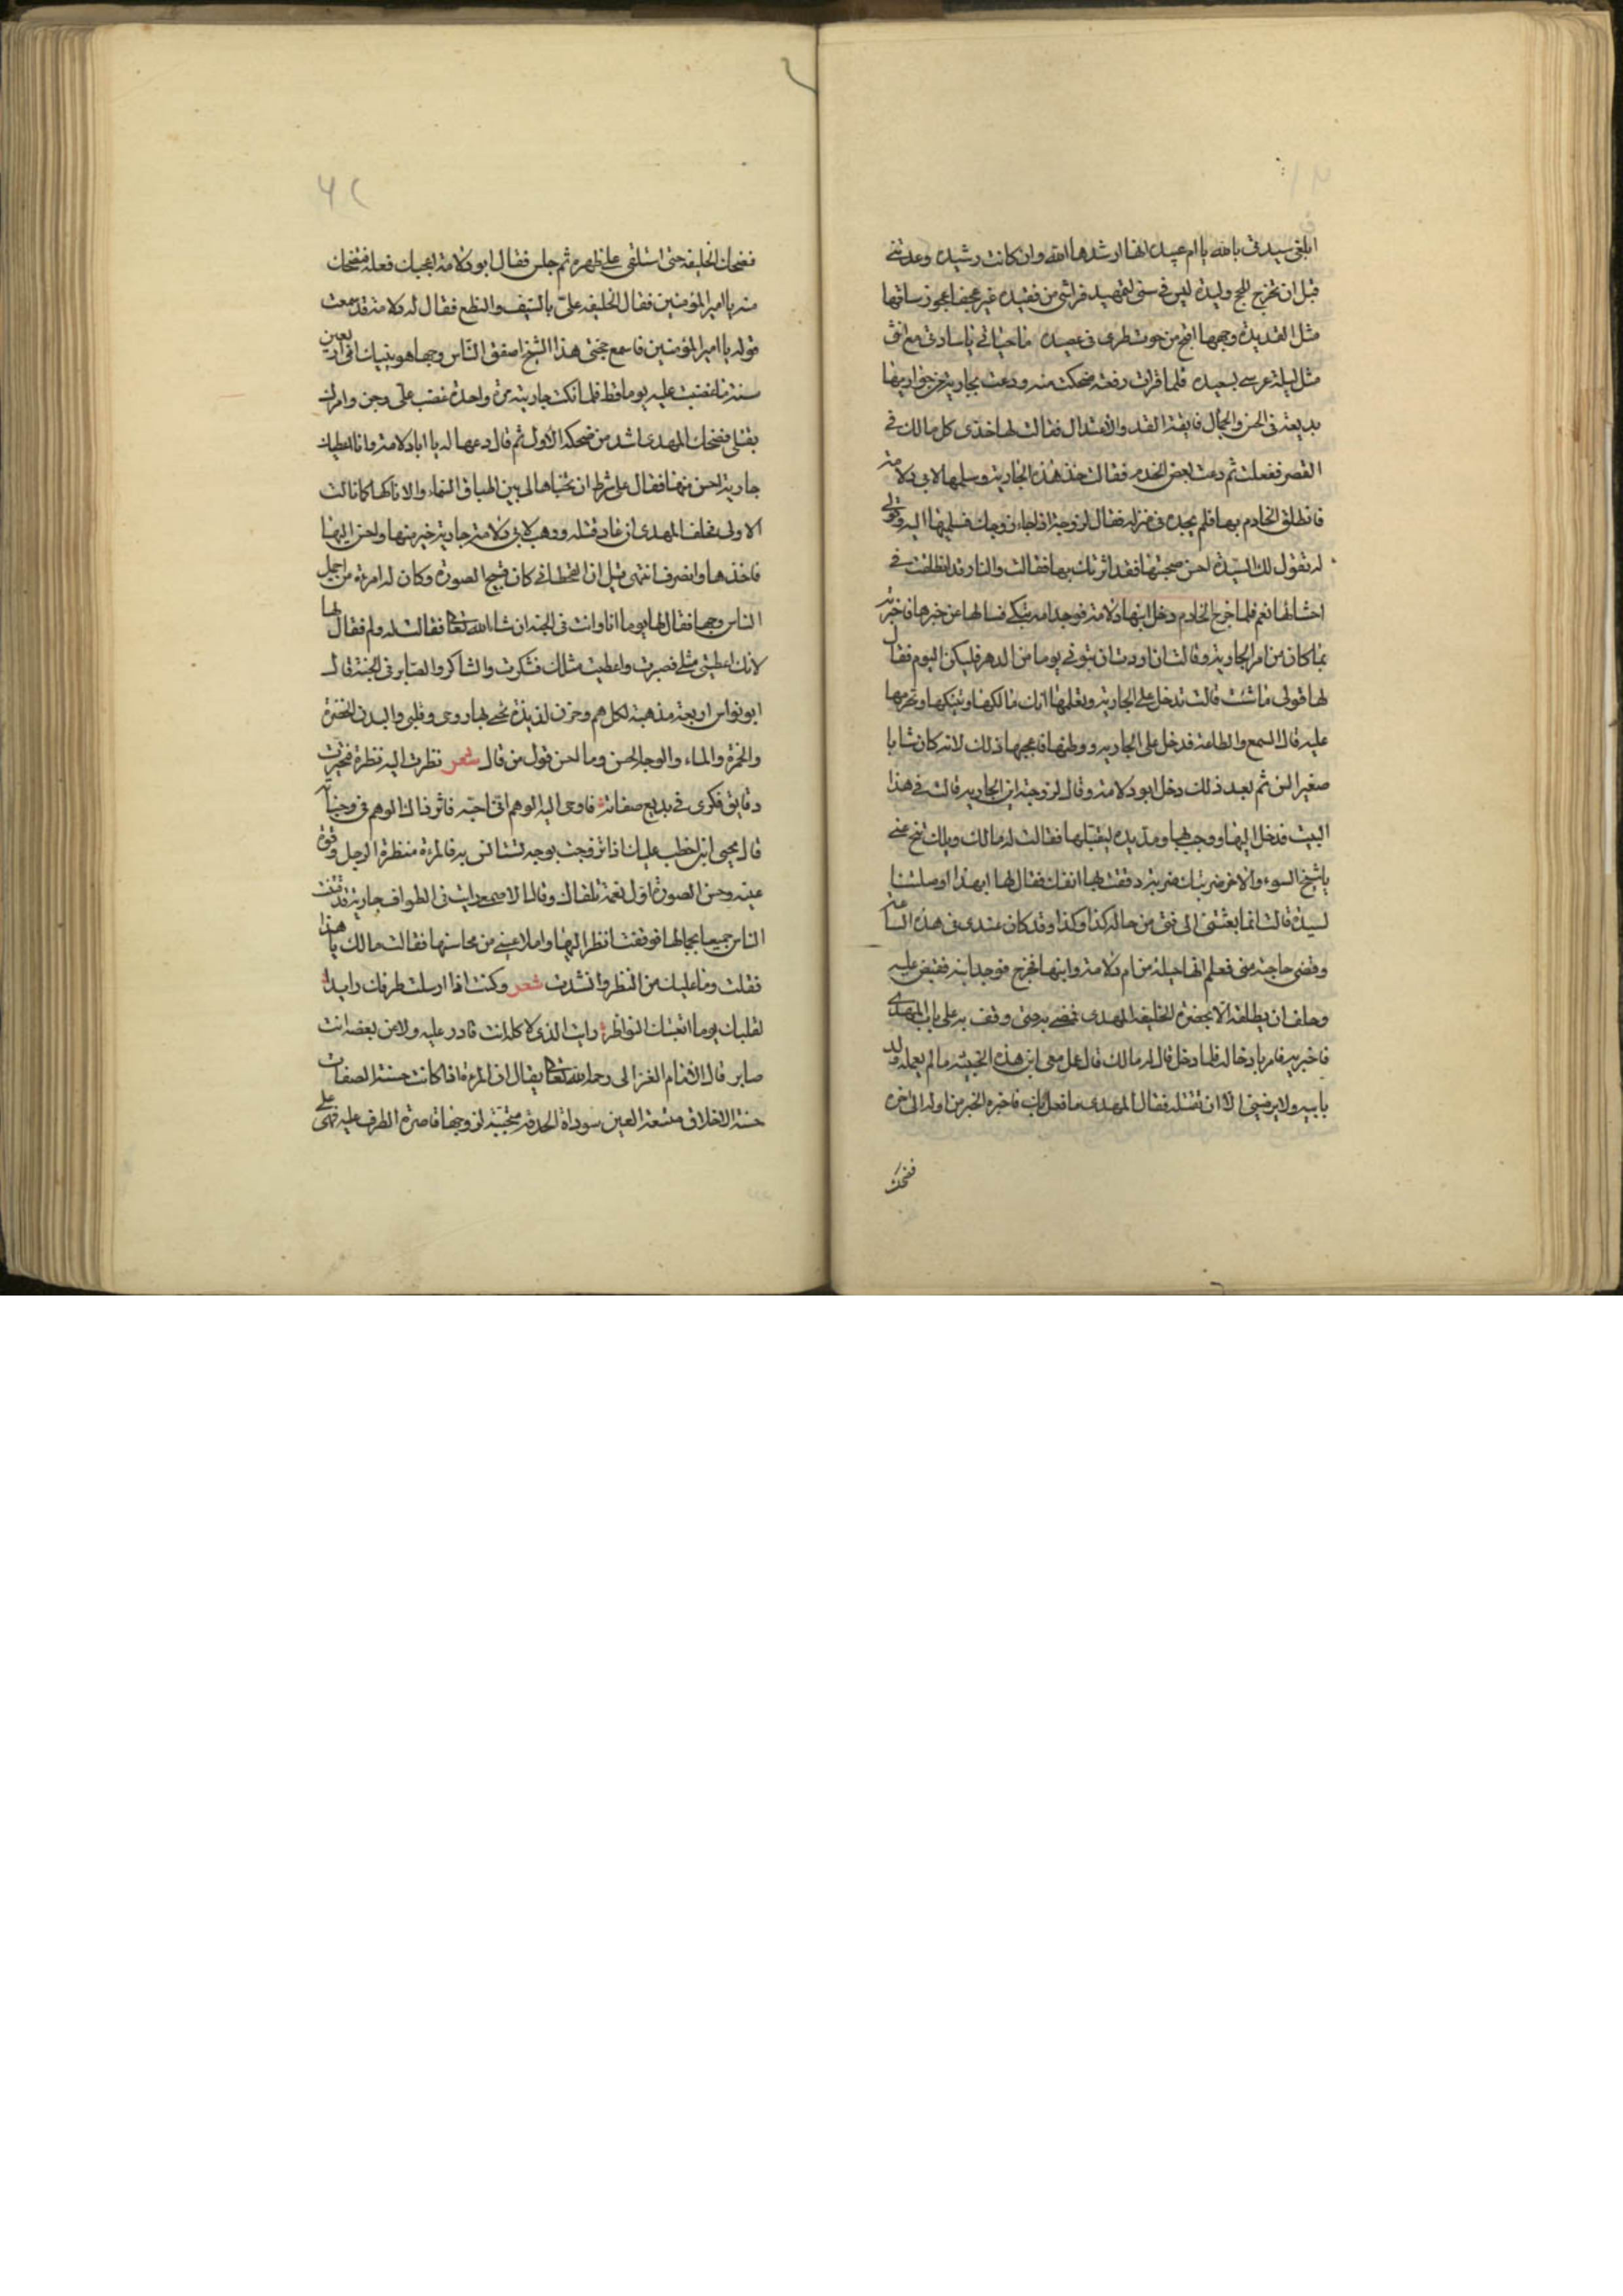 ابلغي سيدتي بالله يا ام عبيده انها ارشدها الله وان كانت رشيده وعدتني
قبل ان تخرج للحج وليده ليس في ستي لتمهيد فراشي من قعيده غير عجفا عجوز ساقها
مثل القديده وجهها اقبح من حوت طري في عصيده ما حياتي يا سادتي مع انثى
مثل ليلة عرسي بسعيده فلما قرات رقعته ضحكت منه ودعت بجارية من جواريها
بديعة في الحسن والجمال فايقة القد والاعتدال فقالت لها خذي كل ما لك في
القصر ففعلت ثم دعت بعض الخدم فقالت خذ هذه الجارية وسلمها الى ابي دلامة
فانطلق الخادم بها فلم يجده في منزله فقال لزوجته اذا جاء زوجك فسلميها اليه وقولي
له تقول لك السيدة احسن صحبتها فقد اثرتك بها فقالت والنار قد انطلقت في
احشائها نعم فلما خرج الخادم دخل ابنها دلامة فوجد امه تبكي فسالها عن خبرها فاخبرته
بما كان من امر الجارية وقالت ان اردت ان تبرني يوما من الدهر فليكن اليوم فقال
لها قولي ما شئت قالت تدخل على الجارية وتعلمها انك مالكها وتنيكها وتحرمها
عليه قال السمع والطاعة فدخل على الجارية ووطئها فاعجبها ذلك لانه كان شابا
صغير السن ثم بعد ذلك دخل ابو دلامة وقال لزوجته اين الجارية قالت في هذا
البيت فدخل اليها ووجلها ومد يده ليقبلها فقالت له مالك ويلك تنح عني
يا شيخ السوء والا ضربتك ضربة دققت بها انفك فقال لها ابهذا اوصلتنا
لسيدة قالت انما بعثتني الى فتى من حاله كذا وكذا وقد كان عندي في هذه الساعة
وقضى حاجته مني فعلم انها حيلة من ام دلامة وابنها فخرج فوجد ابنه فقبض عليه
وحلف ان يطلقه الا بحضرة الخليفة المهدي فمضى به حتى وقف به على باب المهدي
فاخبر به فامر بادخاله فلما دخل قال له مالك قال عمل معي ابن هذه الخبيثة ما لم يعمله ولد
بابيه ولا يرضيني الا ان تقتله فقال المهدي ما فعل بك فاخبره الخبر من اوله الى اخره
فضحك
٦٢
فضحك الخليفة حتى استلقى على ظهره ثم جلس فقال ابو دلامة اعجبك فعله فتضحك
منه يا امير المؤمنين فقال الخليفة علي بالسيف والنطع فقال له دلامة قد سمعت
قوله يا امير المؤمنين فاسمع حجتي هذا الشيخ اصفق الناس وجها هو ينيك امي اربعين
سنة ما غضبت عليه يوما قط فلما نكت جاريته مرة واحدة غضب علي وجن وامرك
بقتلي فضحك المهدي اشد من ضحكه الاول ثم قال دعها له يا ابا دلامة وانا اعطيك
جارية احسن منها فقال على شرط ان تخباها لي بين اطباق السماء والا ناكها كما ناك
الاولى فحلف المهدي ان عاد قتله ووهب لابي دلامة جارية خير منها واحسن اليها
فاخذها وانصرف انتهى قيل ان القحطاني كان قبيح الصورة وكان له امرءة من اجمل
الناس وجها فقال لها يوما انا وانت في الجنة ان شا الله تعالى فقالت له ولم فقال لها
لانك اعطيتي مثلي فصبرت واعطيت مثلك فشكرت والشاكر والصابر في الجنة قال
ابو نواس اربعة مذهبة لكل هم وحزن لذيذة تحيي بها روحي وقلبي والبدن الخضرة
والخمرة والماء والوجه الحسن وما احسن قول من قال شعر نظرت اليه نظرة فتحيرت
دقايق فكري في بديع صفاته فاوحى اليه الوهم اني احبه فاثر ذاك الوهم في وجناته
قال يحيى ابن اخطب عليك اذا تزوجت بوجه تستانس به فالمرءة منظرة الرجل وقرة
عينه وحسن الصورة اول نعمة تلقاك وقال الاصمعي رايت في الطواف جارية قد فتنت
الناس جميعا بجمالها فوقفت انظر اليها واملا عيني من محاسنها فقالت مالك يا هذا
فقلت وما عليك من النظر وانشدت شعر وكنت اذا ارسلت طرفك رايدا
لقلبك يوما اتعبتك النواظر رايت الذي لا كله انت قادر عليه ولا عن بعضه انت
صابر قال الامام الغزالي رحمه الله تعالى يقال ان المرءة اذا كانت حسنة الصفات
حسنة الاخلاق متسعة العين سوداة الحدقة متحببة لزوجها قاصرة الطرف عليه فهي على